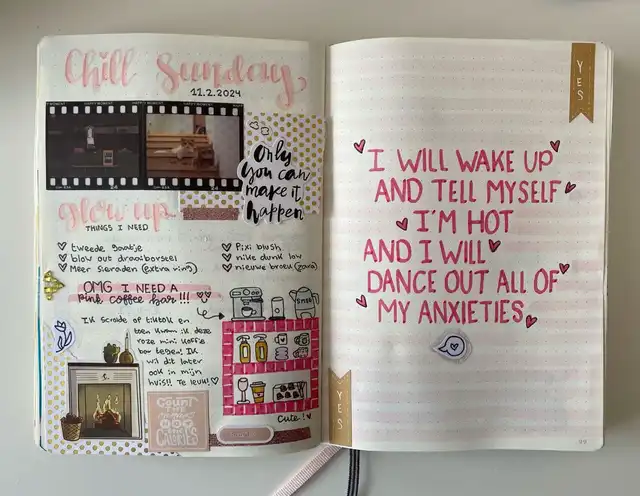 Chill Sunday
11.2.2024
Only
you can
make it
happen
Glow up
THINGS I NEED
tweede gaatje
blow out draaiborstel
Meer sieraden (extra ring)
Pixi blush
nike dunk low
nieuwe broek (zara)
OMG I NEED A
pink coffee bar!!!
Ik scrolde op tiktok en
toen kwam ik deze
roze mini koffie
bar tegen! Ik
wil dit later
ook in mijn
huis!! Te leuk!
SMEG
Cute!
COUNT
THE
MEMORIES
NOT THE
CALORIES
YES
YES
I WILL WAKE UP
AND TELL MYSELF
I'M HOT
AND I WILL
DANCE OUT ALL OF
MY ANXIETIES
99